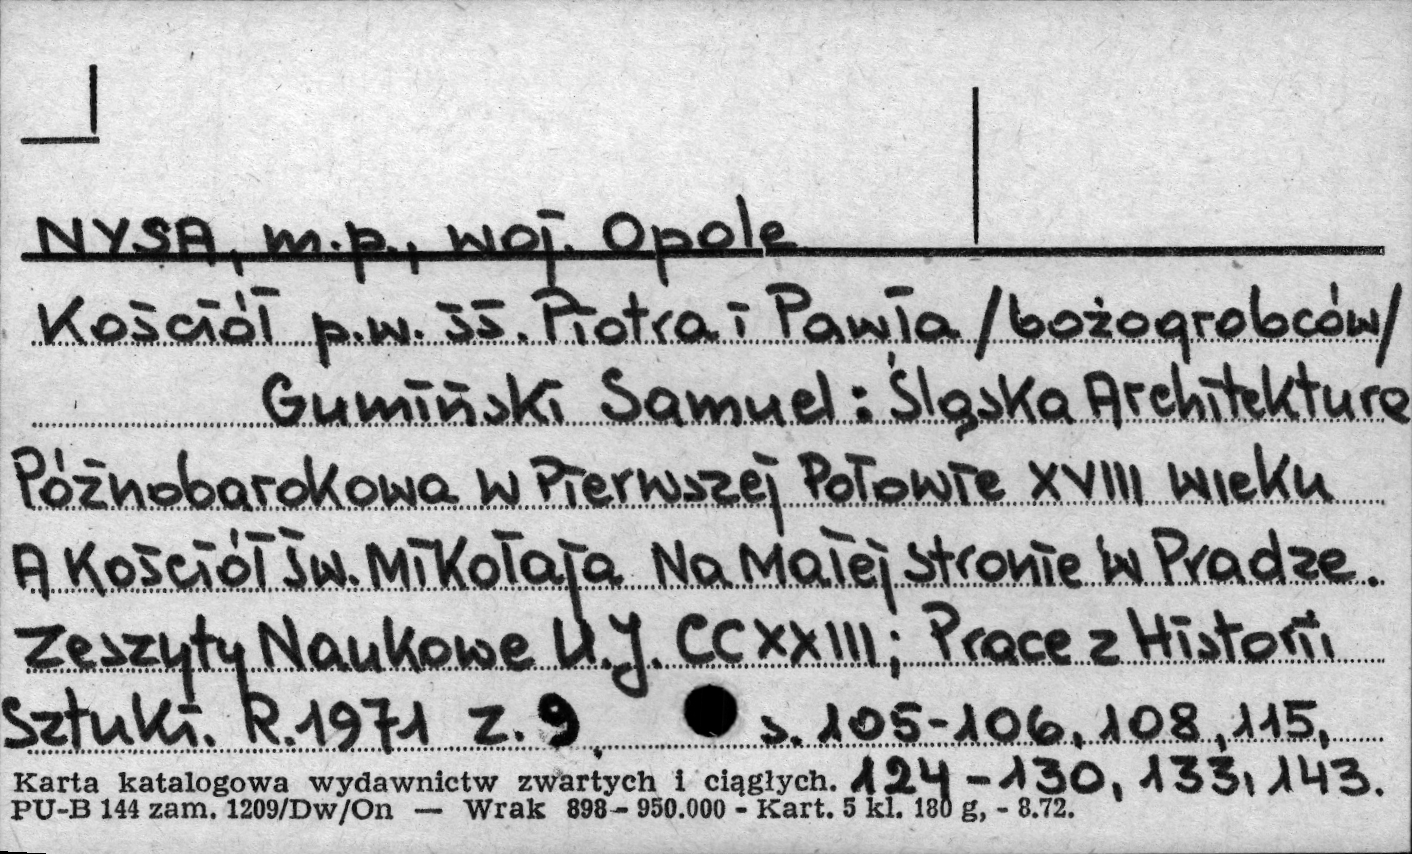 NYSA, m.p., woj. Opole
Kościół p.w. śś. Piotra i Pawła /bożogrobców/
Gumiński Samuel: Śląska Architektura
Późnobarokowa w Pierwszej Połowie XVIII wieku
A Kościół Św. Mikołaja Na Małej Stronie w Pradze.
Zeszyty Naukowe U.J. CCXXIII; Prace z Historii
Sztuki. R.1971 z. 9, s. 105-106, 108, 115,
124-130, 133, 143.
Karta katalogowa wydawnictw zwartych i ciągłych.
PU-B 144 zam. 1209/Dw/On — Wrak 898 - 950.000 - Kart. 5 kl. 180 g, - 8.72.